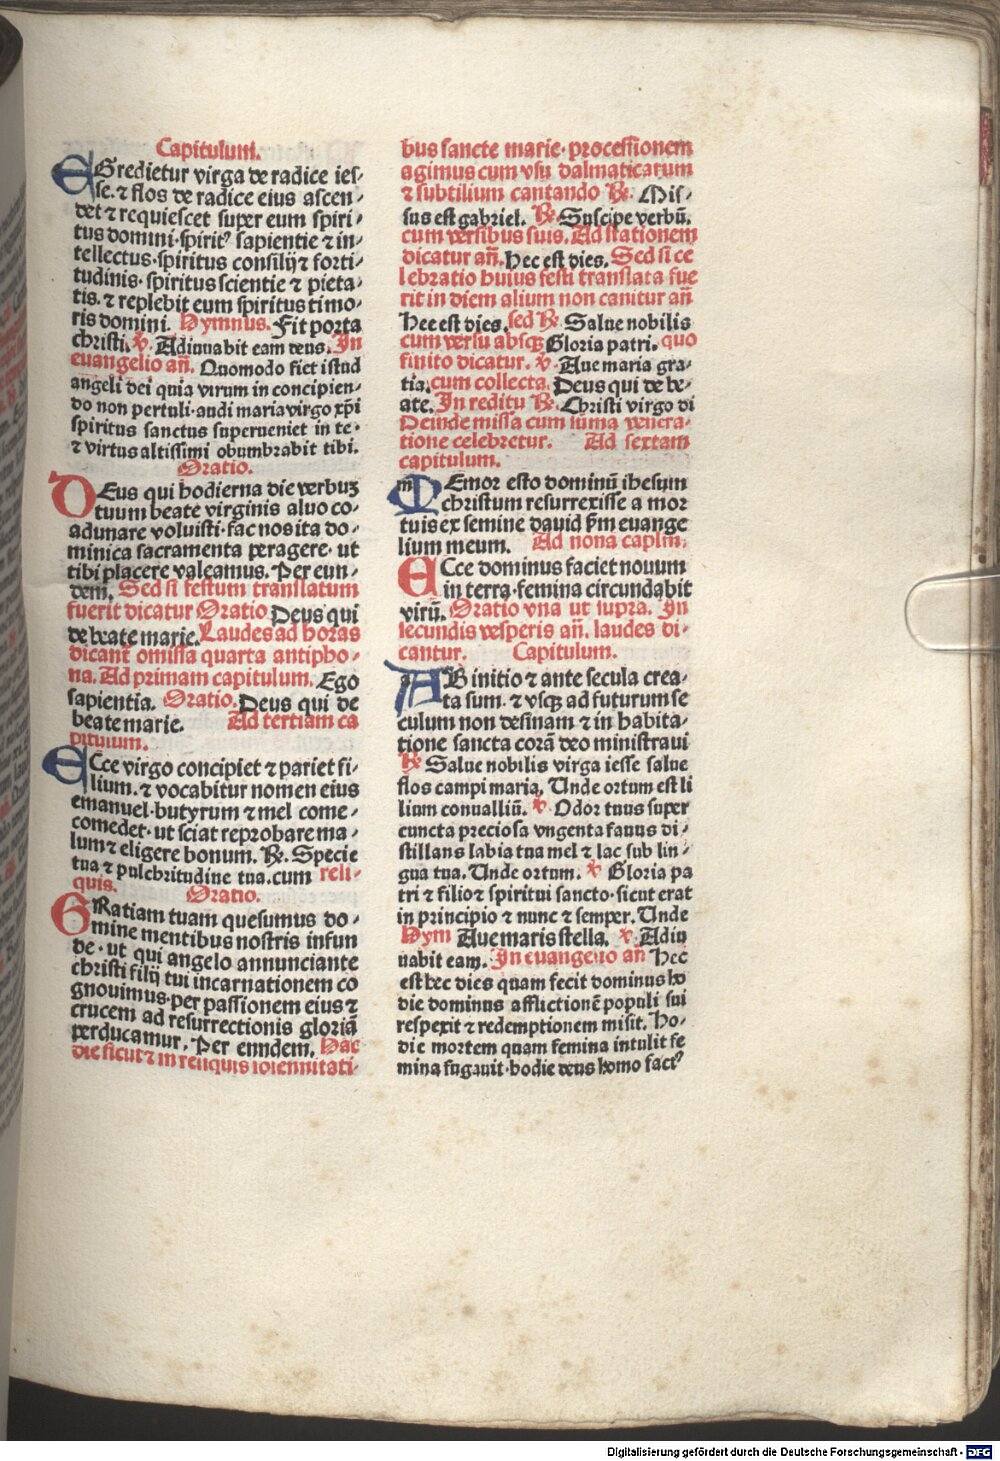 Capitulum.
EGredietur virga de radice ies⸗
se. ⁊ flos de radice eius ascen⸗
det ⁊ requiescet super eum spiri⸗
tus domini·spiritꝰ sapientie ⁊ in⸗
tellectus·spiritus consilij ⁊ forti⸗
tudinis·spiritus scientie ⁊ pieta⸗
tis. ⁊ replebit eum spiritus timo⸗
ris domini. Hymnus. Fit porta
christi. ℣. Adiuuabit eam deus. In
euangelio añ. Quomodo fiet istud
angeli dei quia virum in concipien⸗
do non pertuli·audi maria virgo xp̄i
spiritus sanctus superueniet in te·
⁊ virtus altissimi obumbrabit tibi.
Oratio.
DEus qui hodierna die verbuꝫ
tuum beate virginis aluo co⸗
adunare voluisti·fac nos ita do⸗
minica sacramenta peragere· ut
tibi placere valeamus. Per eun⸗
dem. Sed si festum translatum
fuerit dicatur Oratio Deus qui
de beate marie. Laudes ad horas
dicant̄ omissa quarta antipho⸗
na. Ad primam capitulum. Ego
sapientia. Oratio. Deus qui de
beate marie. Ad tertiam ca
pitulum.
ECce virgo concipiet ⁊ pariet fi⸗
lium. ⁊ vocabitur nomen eius
emanuel·butyrum ⁊ mel come⸗
comedet·ut sciat reprobare ma⸗
lum ⁊ eligere bonum. ℟. Specie
tua ⁊ pulchritudine tua.cum reli⸗
quis. Oratio.
GRatiam tuam quesumus do⸗
mine mentibus nostris infun
de·ut qui angelo annunciante
christi filij tui incarnationem co
gnouimus·per passionem eius ⁊
crucem ad resurrectionis gloriā
perducamur. Per eundem. Hac
die sicut ⁊ in reliquis solennitati⸗
bus sancte marie·processionem
agimus cum vsu dalmaticarum
⁊ subtilium cantando ℟. Mis⸗
sus est gabriel. ℟. Suscipe verbū.
cum versibus suis. Ad stationem
dicatur añ. Hec est dies. Sed si ce
lebratio huius festi translata fue
rit in diem alium non canitur añ
Hec est dies. sed ℟. Salue nobilis
cum versu absqꝫ Gloria patri. quo
finito dicatur. ℣. Aue maria gra⸗
tia.cum collecta. Deus qui de be⸗
ate. In reditu ℟. Christi virgo di
Deinde missa cum sūma venera⸗
tione celebretur. Ad sextam
capitulum.
MEmor esto dominū ihesum
christum resurrexisse a mor
tuis ex semine dauid ꝑm euange
lium meum. Ad nona capl̄m.
ECce dominus faciet nouum
in terra·femina circundabit
virū. Oratio vna ut supra. In
secundis vesperis añ. laudes di⸗
cantur. Capitulum.
AB initio ⁊ ante secula crea⸗
ta sum. ⁊ vsqꝫ ad futurum se
culum non desinam ⁊ in habita⸗
tione sancta corā deo ministraui
℟ Salue nobilis virga iesse salue
flos campi maria. Unde ortum est li
lium conualliū. ℣. Odor tuus super
cuncta preciosa vngenta fauus di⸗
stillans labia tua mel ⁊ lac sub lin⸗
gua tua. Unde ortum. ℣ Gloria pa
tri ⁊ filio ⁊ spiritui sancto·sicut erat
in principio ⁊ nunc ⁊ semper. Unde
Hym Aue maris stella. ℣. Adiu
uabit eam. In euangelio añ Hec
est hec dies quam fecit dominus ho
die dominus afflictionē populi sui
respexit ⁊ redemptionem misit. Ho⸗
die mortem quam femina intulit fe
mina fugauit·hodie deus homo factꝰ
Digitalisierung gefördert durch die Deutsche Forschungsgemeinschaft - DFG